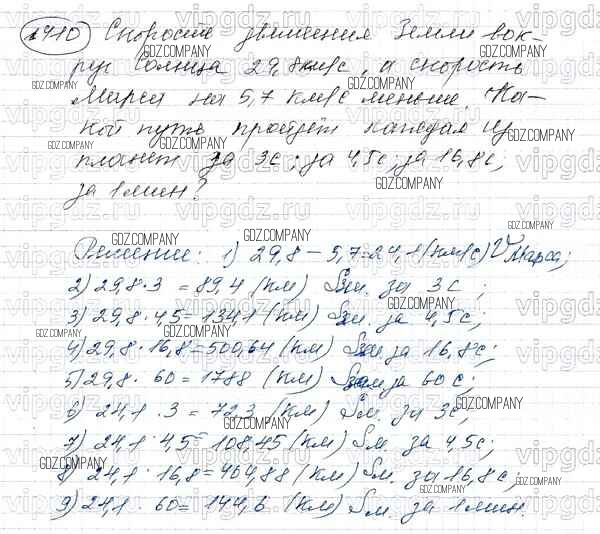 1410 Скорость движения Земли вок-
руг Солнца 29,8 км/с, а скорость
Марса на 5,7 км/с меньше. Ка-
кой путь пройдёт каждая из
планет за 3с; за 4,5с; за 16,8с;
за 1 мин?
Решение: 1) 29,8 – 5,7 = 24,1 (км/с) V Марса;
2) 29,8 · 3 = 89,4 (км) Sзм. за 3с;
3) 29,8 · 4,5 = 134,1 (км) Sзм. за 4,5с;
4) 29,8 · 16,8 = 500,64 (км) Sзм. за 16,8с;
5) 29,8 · 60 = 1788 (км) Sзем. за 60с;
6) 24,1 · 3 = 72,3 (км) Sм. за 3с;
7) 24,1 · 4,5 = 108,45 (км) Sм. за 4,5с;
8) 24,1 · 16,8 = 404,88 (км) Sм. за 16,8с;
9) 24,1 · 60 = 144,6 (км) Sм. за 1 мин.
GDZ.COMPANY
vipgdz